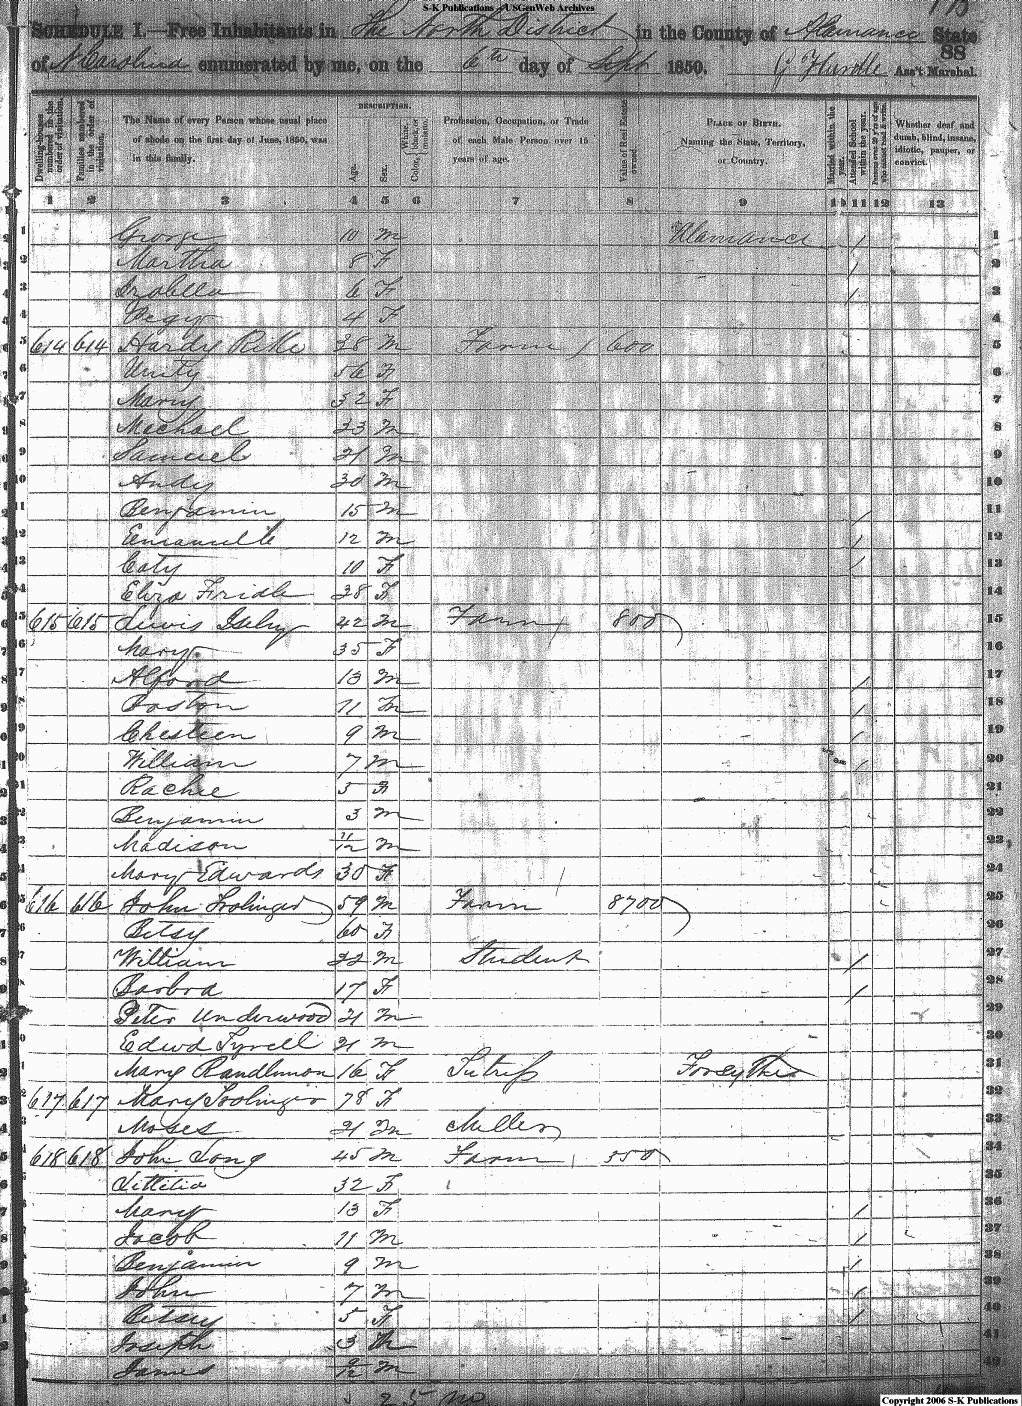 S-K Publications / USGenWeb Archives
SCHEDULE I.—Free Inhabitants in The North District in the County of Alamance State
of N Carolina enumerated by me, on the 6th day of Sept 1850. G Hurdle Ass't Marshal.
88
Dwelling-houses numbered in the order of visitation.
Families numbered in the order of visitation.
The Name of every Person whose usual place of abode on the first day of June, 1850, was in this family.
DESCRIPTION.
Age.
Sex.
Color, White, black, or mulatto.
Profession, Occupation, or Trade of each Male Person over 15 years of age.
Value of Real Estate owned.
PLACE OF BIRTH. Naming the State, Territory, or Country.
Married within the year.
Attended School within the year.
Persons over 20 y'rs of age who cannot read & write.
Whether deaf and dumb, blind, insane, idiotic, pauper, or convict.
1 2 3 4 5 6 7 8 9 10 11 12 13
1 George 10 M Alamance / 1
2 Martha 8 F / 2
3 Isabella 6 F / 3
4 4 F 4
614 614 Hardy Rike 38 M Farm 600 5
6 Unity 56 F 6
7 Mary 32 F 7
8 Michael 23 M 8
9 Samuel 21 M 9
10 Andy 30 M 10
11 Benjamin 15 M / 11
12 12 M / 12
13 Caty 10 F / 13
14 Eliza 28 F 14
615 615 Lewis Isley 42 M Farm 800 15
16 Mary 35 F 16
17 Alford 13 M / 17
18 Boston 11 M / 18
19 Chesteen 9 M / 19
20 William 7 M / 20
21 5 F 21
22 Benjamin 3 M 22
23 Madison 11/12 M 23
24 Mary Edwards 30 F 24
616 616 John Trolinger 59 M Farm 8700 25
26 Betsy 60 F 26
27 William 22 M Student / 27
28 Barbra 17 F / 28
29 Peter Underwood 21 M 29
30 Edwd Tyrell 21 M 30
Mary 16 F Tutress Forsythe 31
617 617 Mary Trolinger 78 F 32
Moses 21 M Miller 33
618 618 John Long 45 M Farm 550 34
32 F 35
Mary 13 F / 36
Jacob 11 M / 37
Benjamin 9 M / 38
John 7 M / 39
Betsey 5 F / 40
Joseph 3 M 41
James 9/12 M 42
25 mo
Copyright 2006 S-K Publications